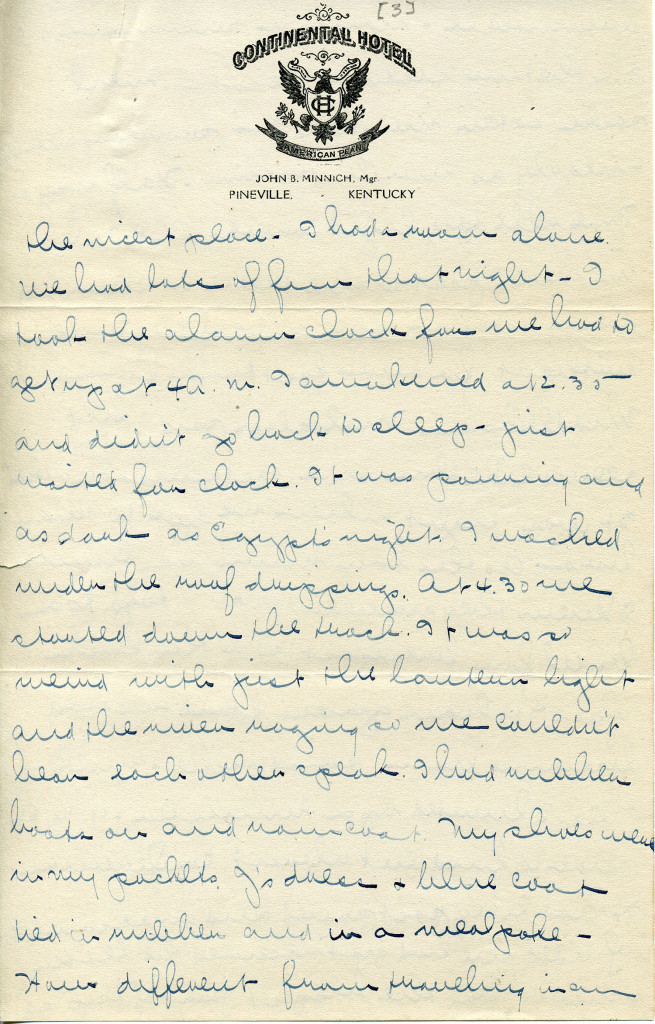 [3]
CONTINENTAL HOTEL
CH
AMERICAN PLAN
JOHN B. MINNICH, Mgr.
PINEVILLE, KENTUCKY
the nicest place - I had a room alone.
We had lots of fun that night - I
took the alarm clock for we had to
get up at 4 A. M. I awakened at 2.35
and didn't go back to sleep - just
waited for clock. It was pouring and
as dark as Egypt's night. I washed
under the roof drippings. At 4.30 we
started down the track. It was so
weird with just the lantern light
and the river raging so we couldn't
hear each other speak. I had rubber
boots on and rain coat. My shoes were
in my pockets. J's dress & blue coat
tied in rubber and in a meal poke -
How different from traveling in an